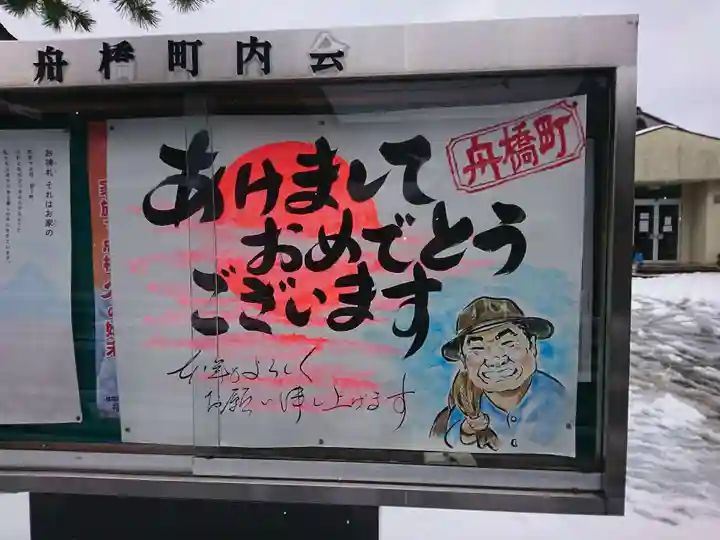 舟橋町内会
舟橋町
あけまして
おめでとう
ございます
本年もよろしく
お願い申し上げます
お神札 それはお家の